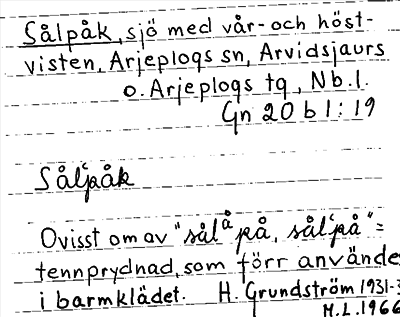 Sålpåk, sjö med vår- och höst-
visten, Arjeplogs sn, Arvidsjaurs
o. Arjeplogs tg, Nb.l.
Gn 20 b 1:19
Sål'påk
Ovisst om av "sålåpå, sål'på" =
tennprydnad, som förr använde
i barmklädet. H. Grundström 1931-3
H.L. 1966